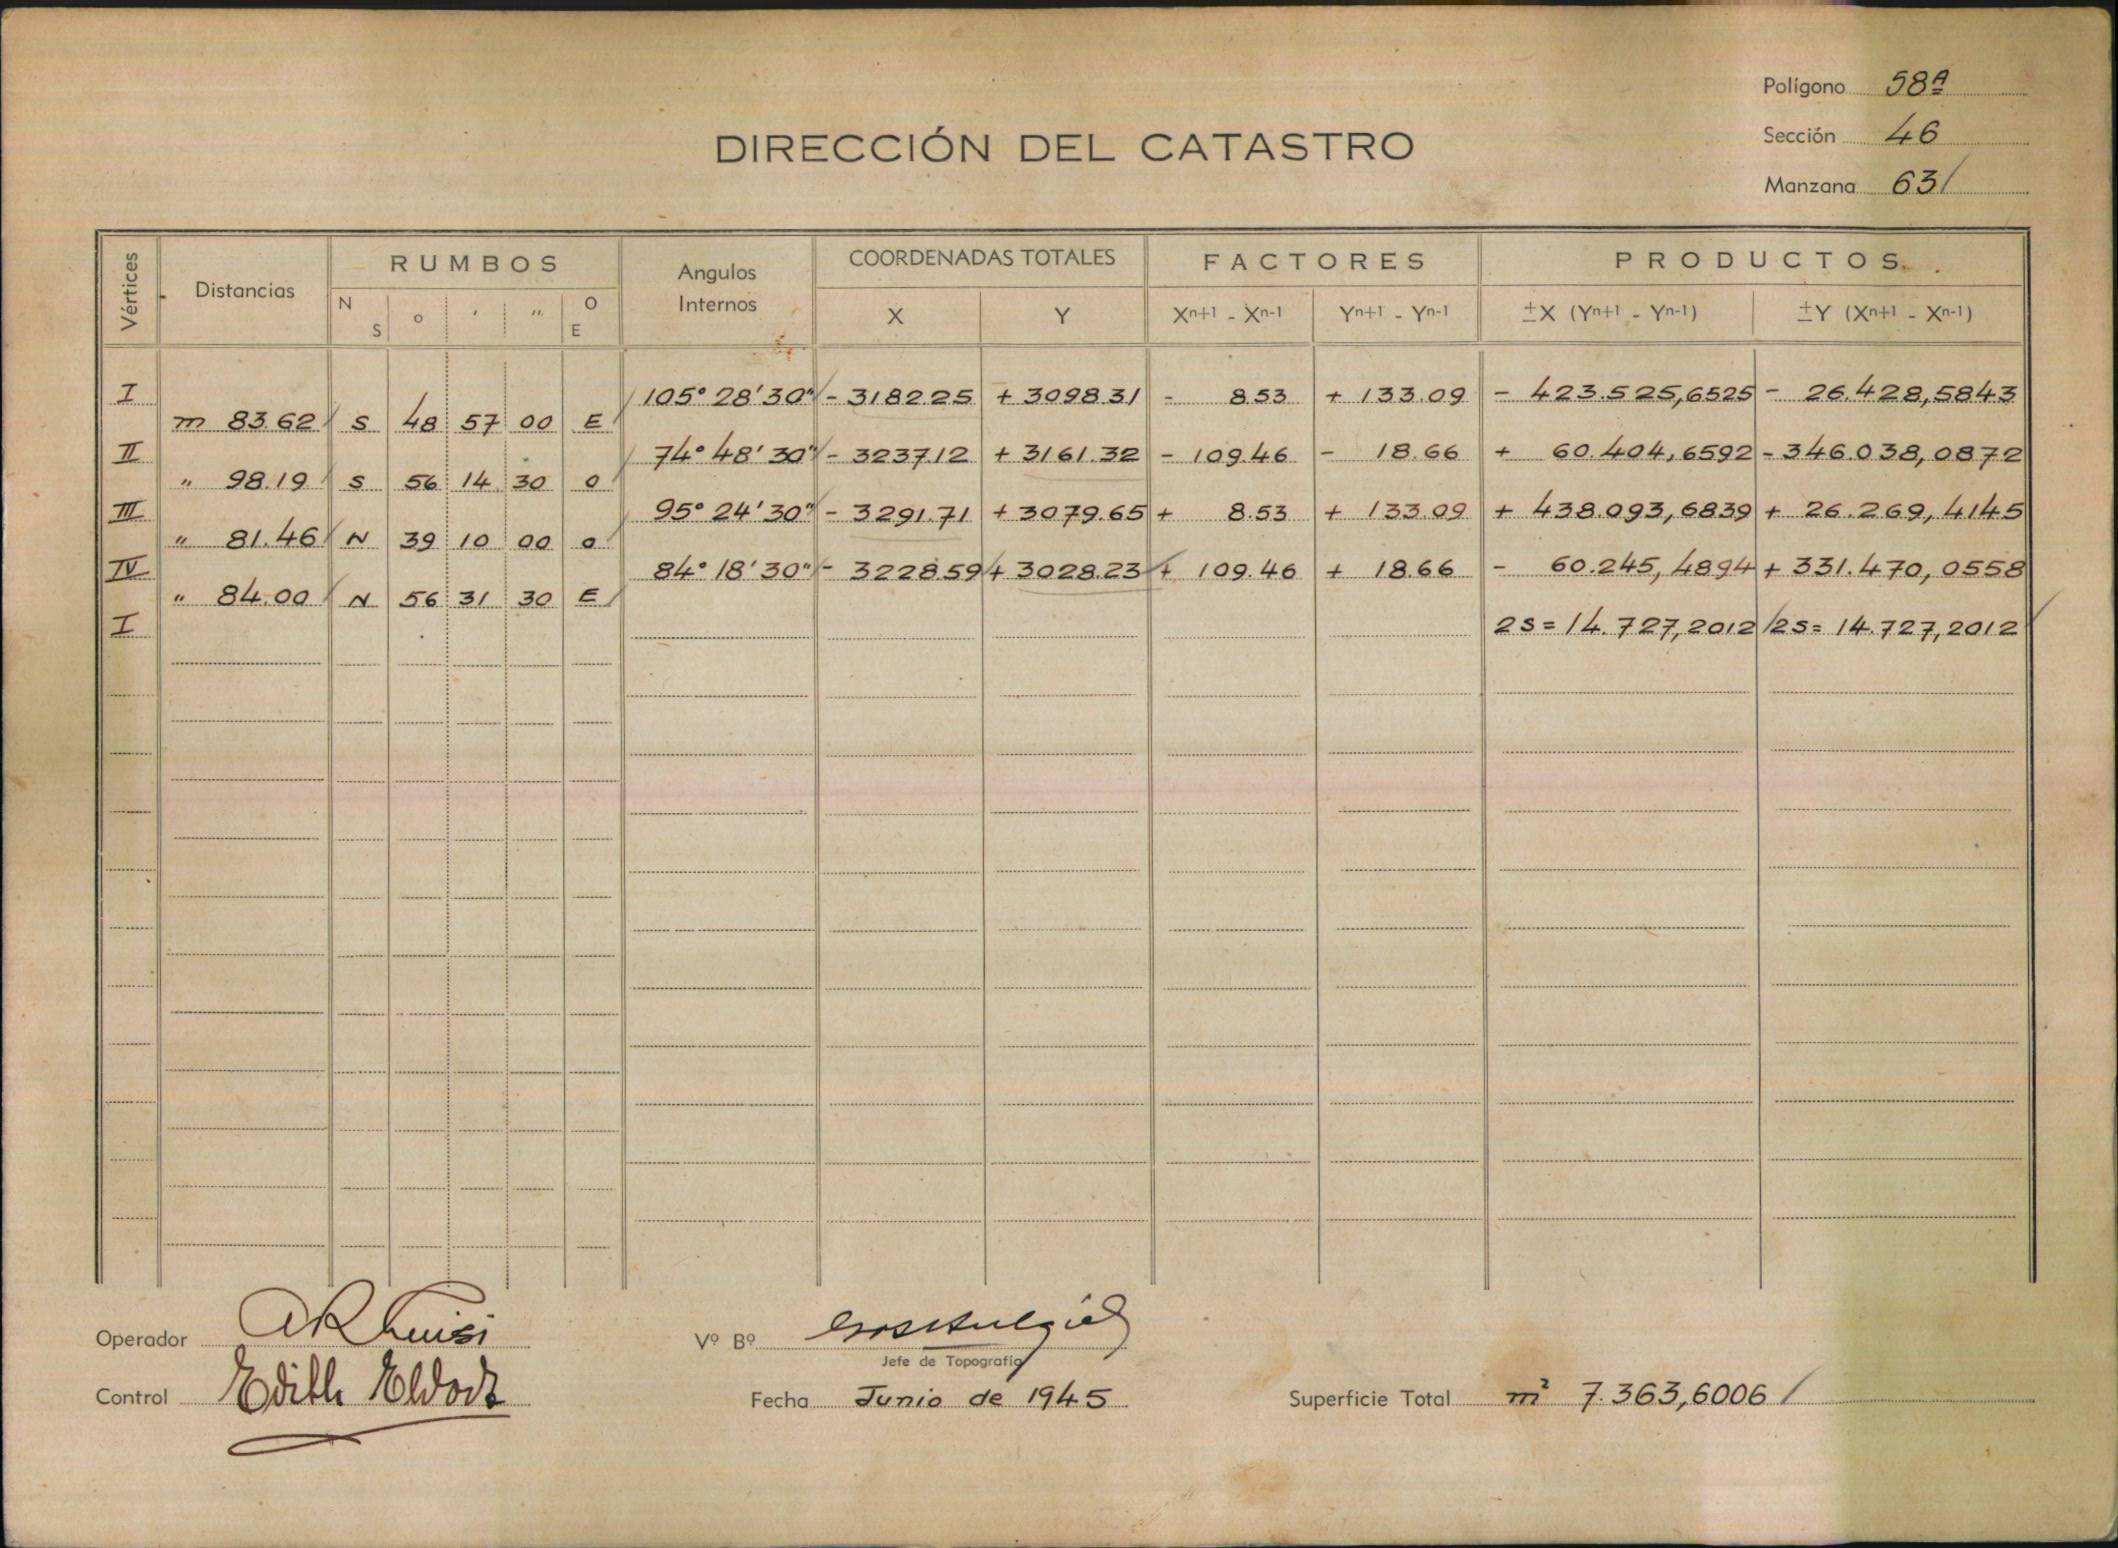 Polígono 58ª
DIRECCIÓN DEL CATASTRO
Sección 46
Manzana 63
Vértices Distancias RUMBOS Angulos Internos COORDENADAS TOTALES FACTORES PRODUCTOS
N S ° ' " O E X Y Xn+1 - Xn-1 Yn+1 - Yn-1 ±X (Yn+1 - Yn-1) ±Y (Xn+1 - Xn-1)
I 105° 28' 30" - 3182.25 + 3098.31 - 8.53 + 133.09 - 423.525,6525 - 26.428,5843
m 83.62 S 48 57 00 E
II 74° 48' 30" - 3237.12 + 3161.32 - 109.46 - 18.66 + 60.404,6592 - 346.038,0872
" 98.19 S 56 14 30 O
III 95° 24' 30" - 3291.71 + 3079.65 + 8.53 + 133.09 + 438.093,6839 + 26.269,4145
" 81.46 N 39 10 00 O
IV 84° 18' 30" - 3228.59 + 3028.23 + 109.46 + 18.66 - 60.245,4894 + 331.470,0558
" 84.00 N 56 31 30 E
I 2S = 14.727,2012 2S = 14.727,2012
Operador
Vº Bº
Jefe de Topografía
Control Edith
Fecha Junio de 1945
Superficie Total m² 7.363,6006